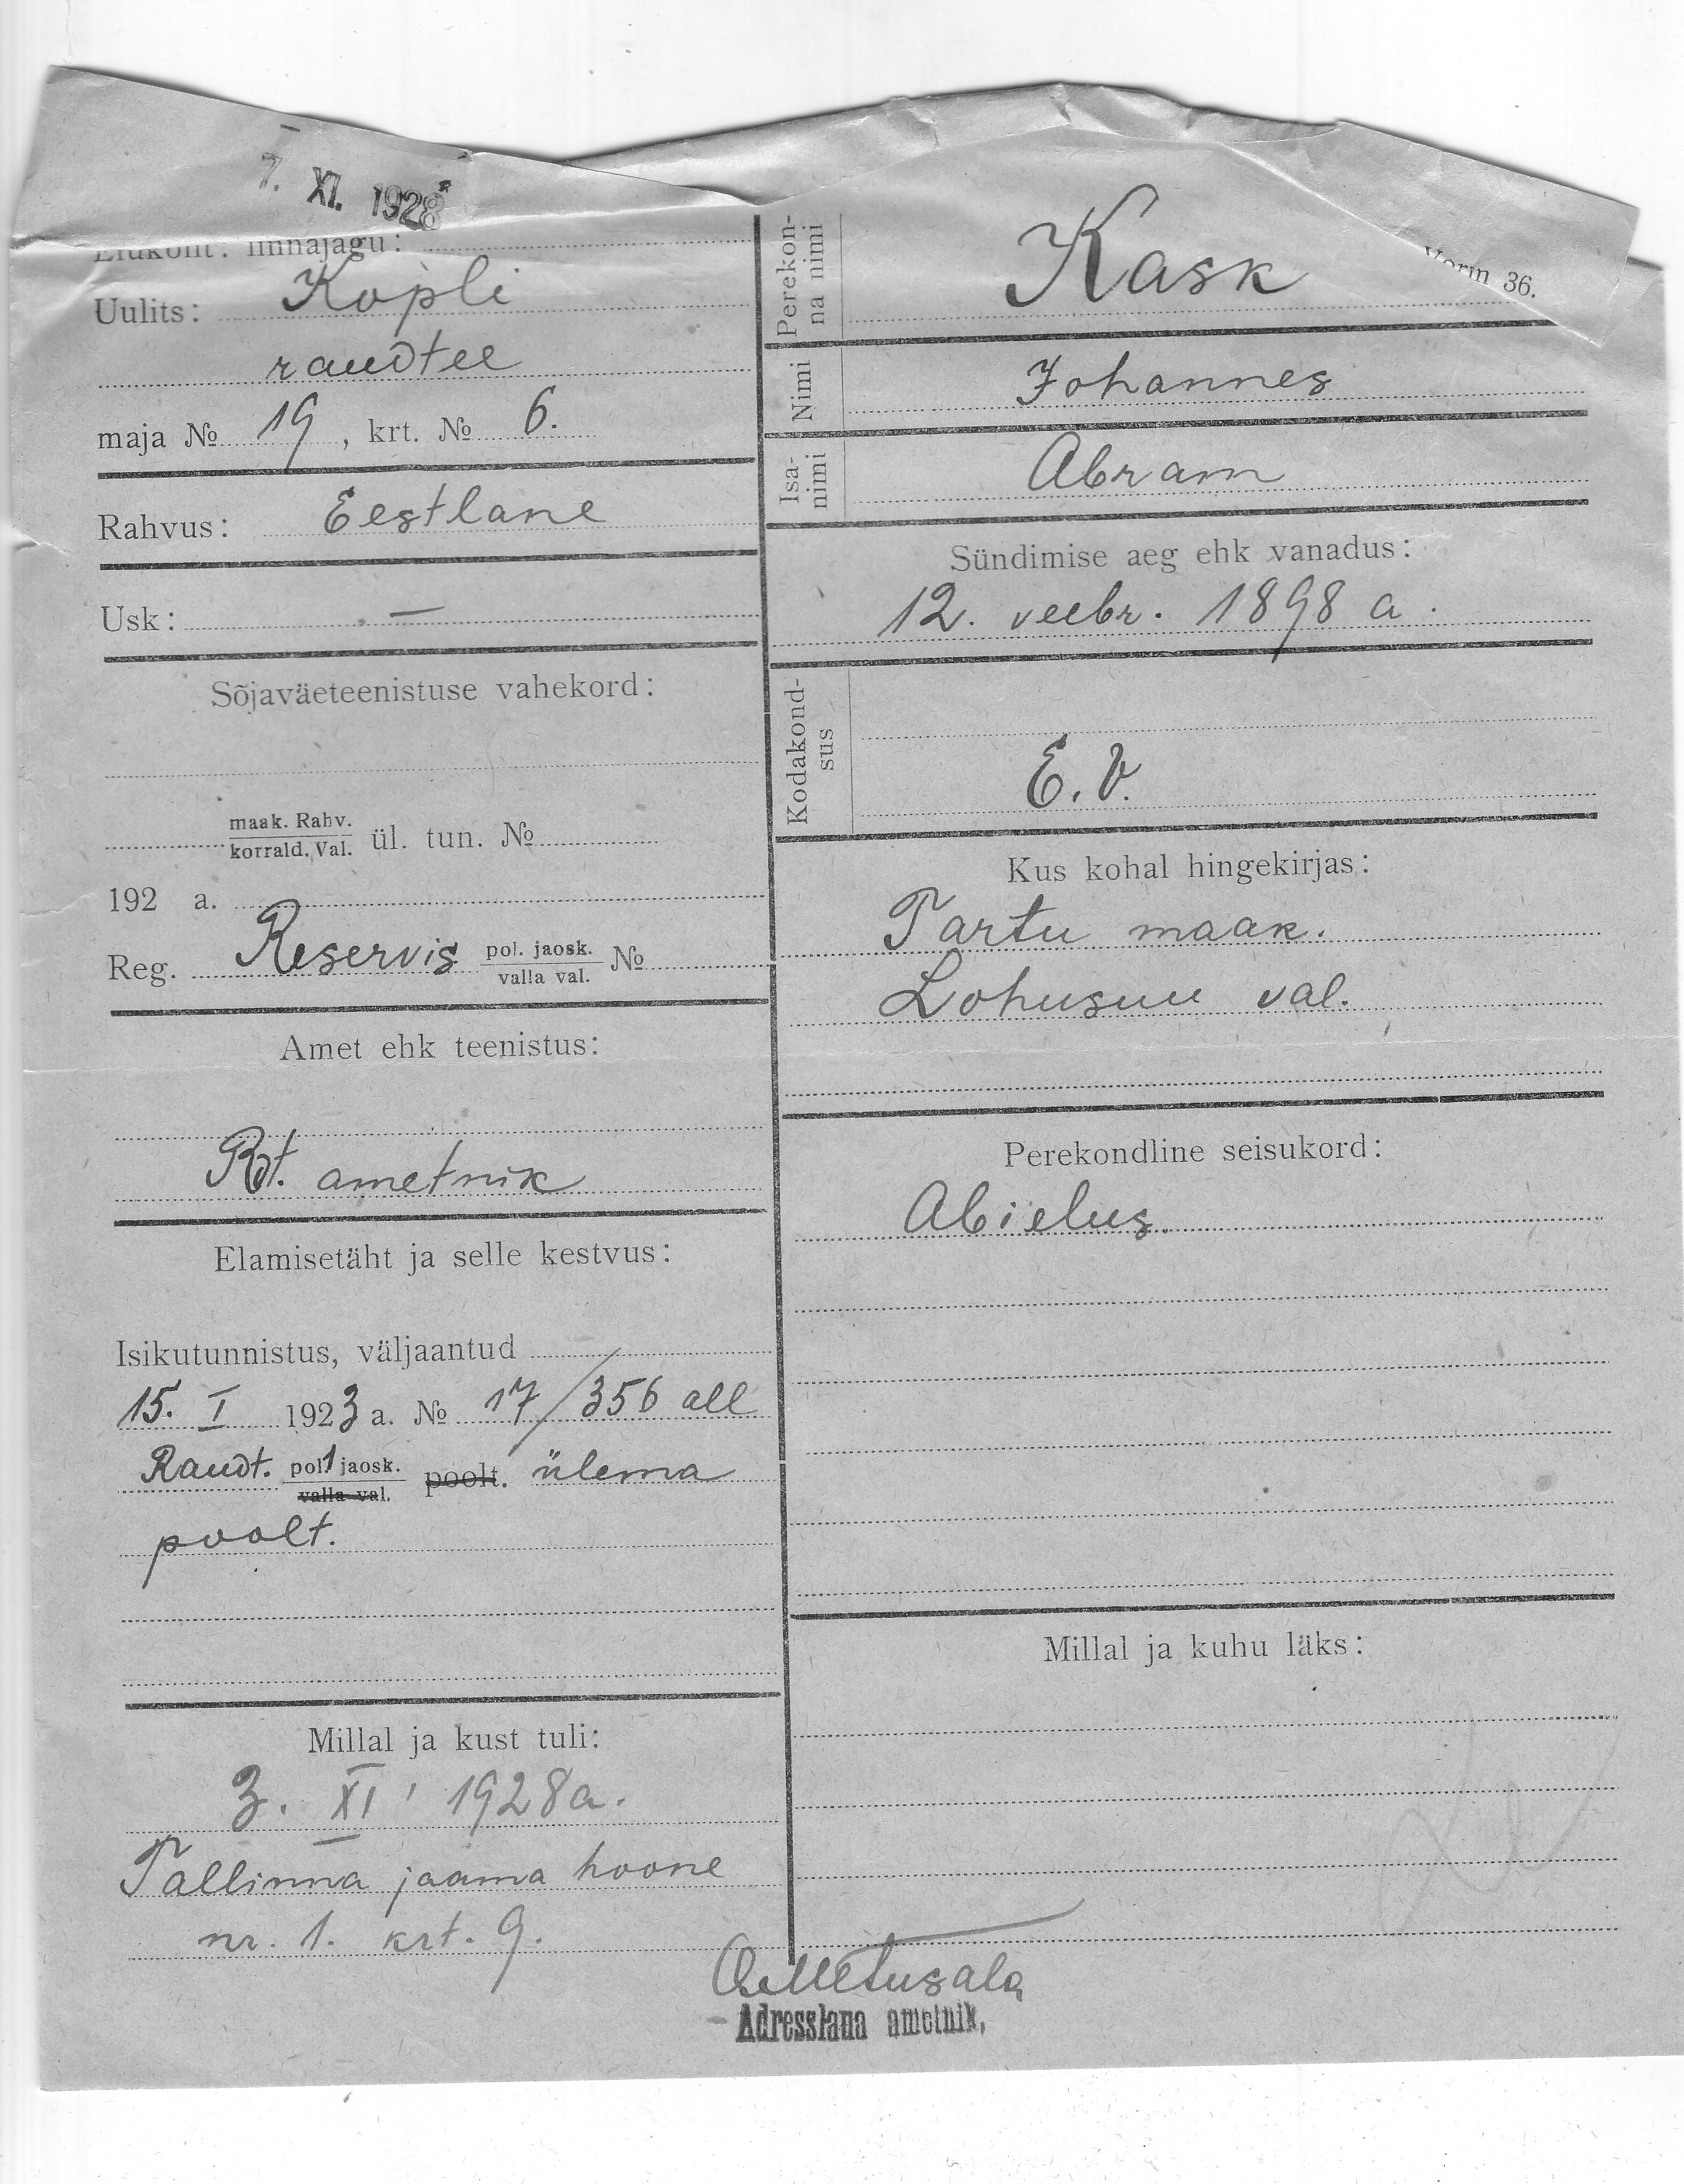 7. XI. 1928
Elukoht: linnajagu:
Uulits: Kopli
raudtee
maja № 19, krt. № 6.
Rahvus: Eestlane
Usk: —
Sõjaväeteenistuse vahekord:
maak. Rahv.
korrald. Val. ül. tun. №
192 a.
Reg. Reservis pol. jaosk. №
valla val.
Amet ehk teenistus:
Rt. ametnik
Elamisetäht ja selle kestvus:
Isikutunnistus, väljaantud
15. I 1923 a. № 17/356 all
Raudt. pol. 1 jaosk. poolt. ülema
valla val.
poolt.
Millal ja kust tuli:
3. XI 1928 a.
Tallinna jaama hoone
nr. 1. krt. 9.
Vorm 36.
Perekon-
na nimi
Kask
Nimi
Johannes
Isa-
nimi
Abram
Sündimise aeg ehk vanadus:
12. veebr. 1898 a.
Kodakond-
sus
E. V.
Kus kohal hingekirjas:
Tartu maak.
Lohusuu val.
Perekondline seisukord:
Abielus.
Millal ja kuhu läks:
Adresslaua ametnik,